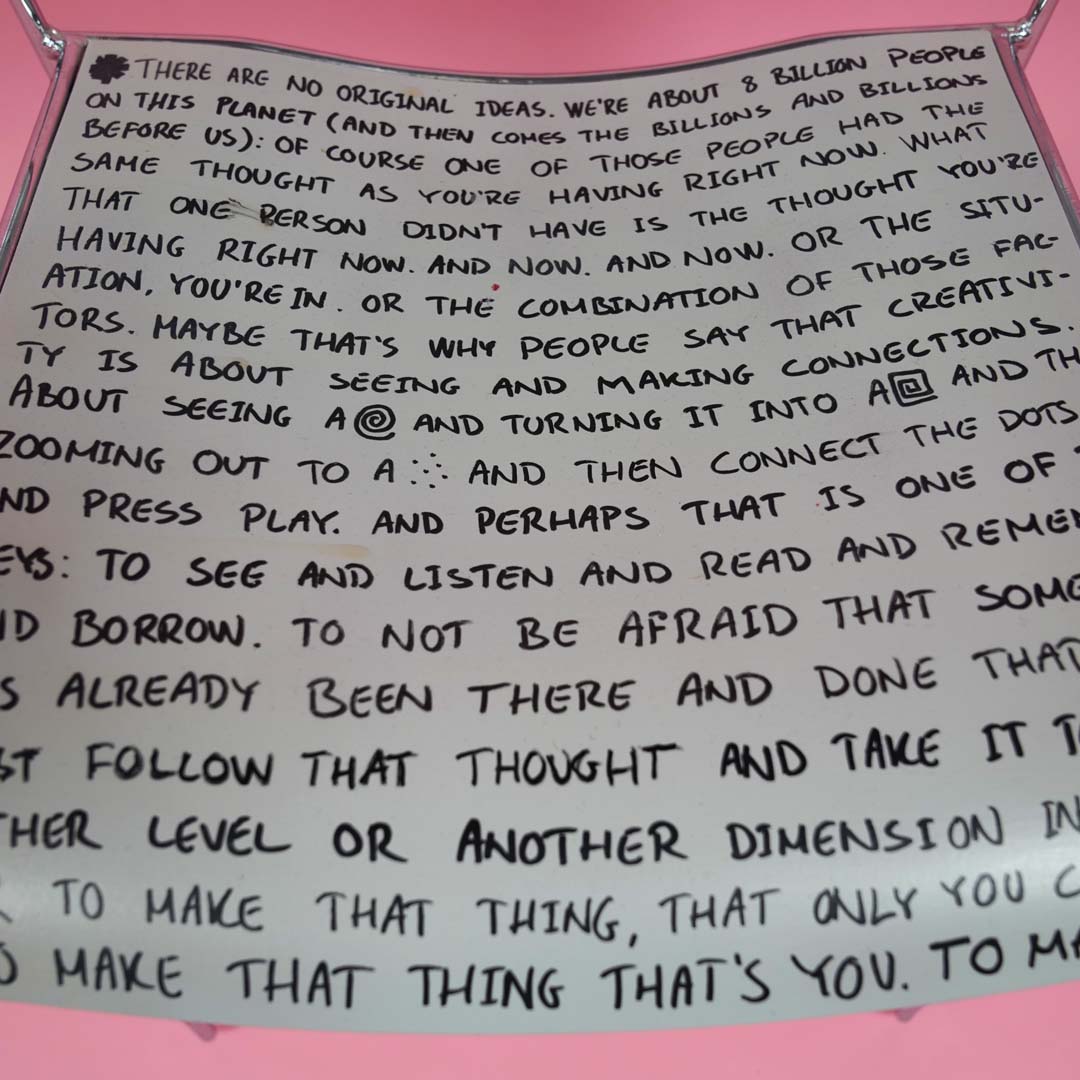 THERE ARE NO ORIGINAL IDEAS. WE'RE ABOUT 8 BILLION PEOPLE
ON THIS PLANET (AND THEN COMES THE BILLIONS AND BILLIONS
BEFORE US): OF COURSE ONE OF THOSE PEOPLE HAD THE
SAME THOUGHT AS YOU'RE HAVING RIGHT NOW. WHAT
THAT ONE PERSON DIDN'T HAVE IS THE THOUGHT YOU'RE
HAVING RIGHT NOW. AND NOW. AND NOW. OR THE SITU-
ATION, YOU'RE IN. OR THE COMBINATION OF THOSE FAC-
TORS. MAYBE THAT'S WHY PEOPLE SAY THAT CREATIVI-
TY IS ABOUT SEEING AND MAKING CONNECTIONS.
ABOUT SEEING A AND TURNING IT INTO A AND TH
ZOOMING OUT TO A AND THEN CONNECT THE DOTS
ND PRESS PLAY. AND PERHAPS THAT IS ONE OF
EYS: TO SEE AND LISTEN AND READ AND REME
ND BORROW. TO NOT BE AFRAID THAT SOME
S ALREADY BEEN THERE AND DONE THAT
ST FOLLOW THAT THOUGHT AND TAKE IT TO
THER LEVEL OR ANOTHER DIMENSION IN
TO MAKE THAT THING, THAT ONLY YOU C
O MAKE THAT THING THAT'S YOU. TO MA